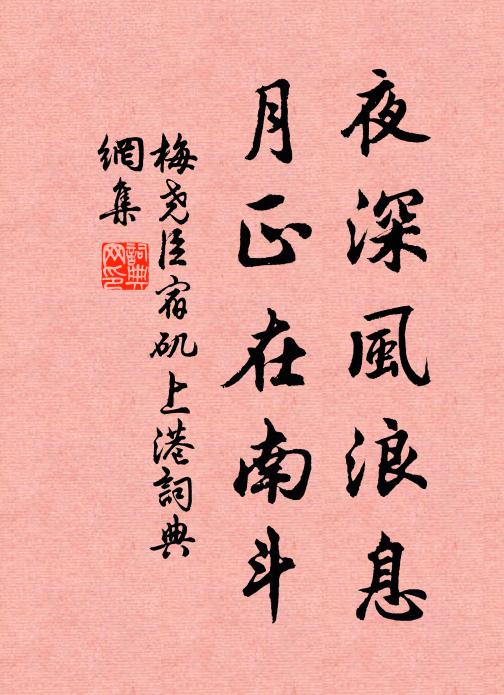 夜深風浪息
月正在南斗
梅堯臣宿矶上港詞典
網集
詞典
网印